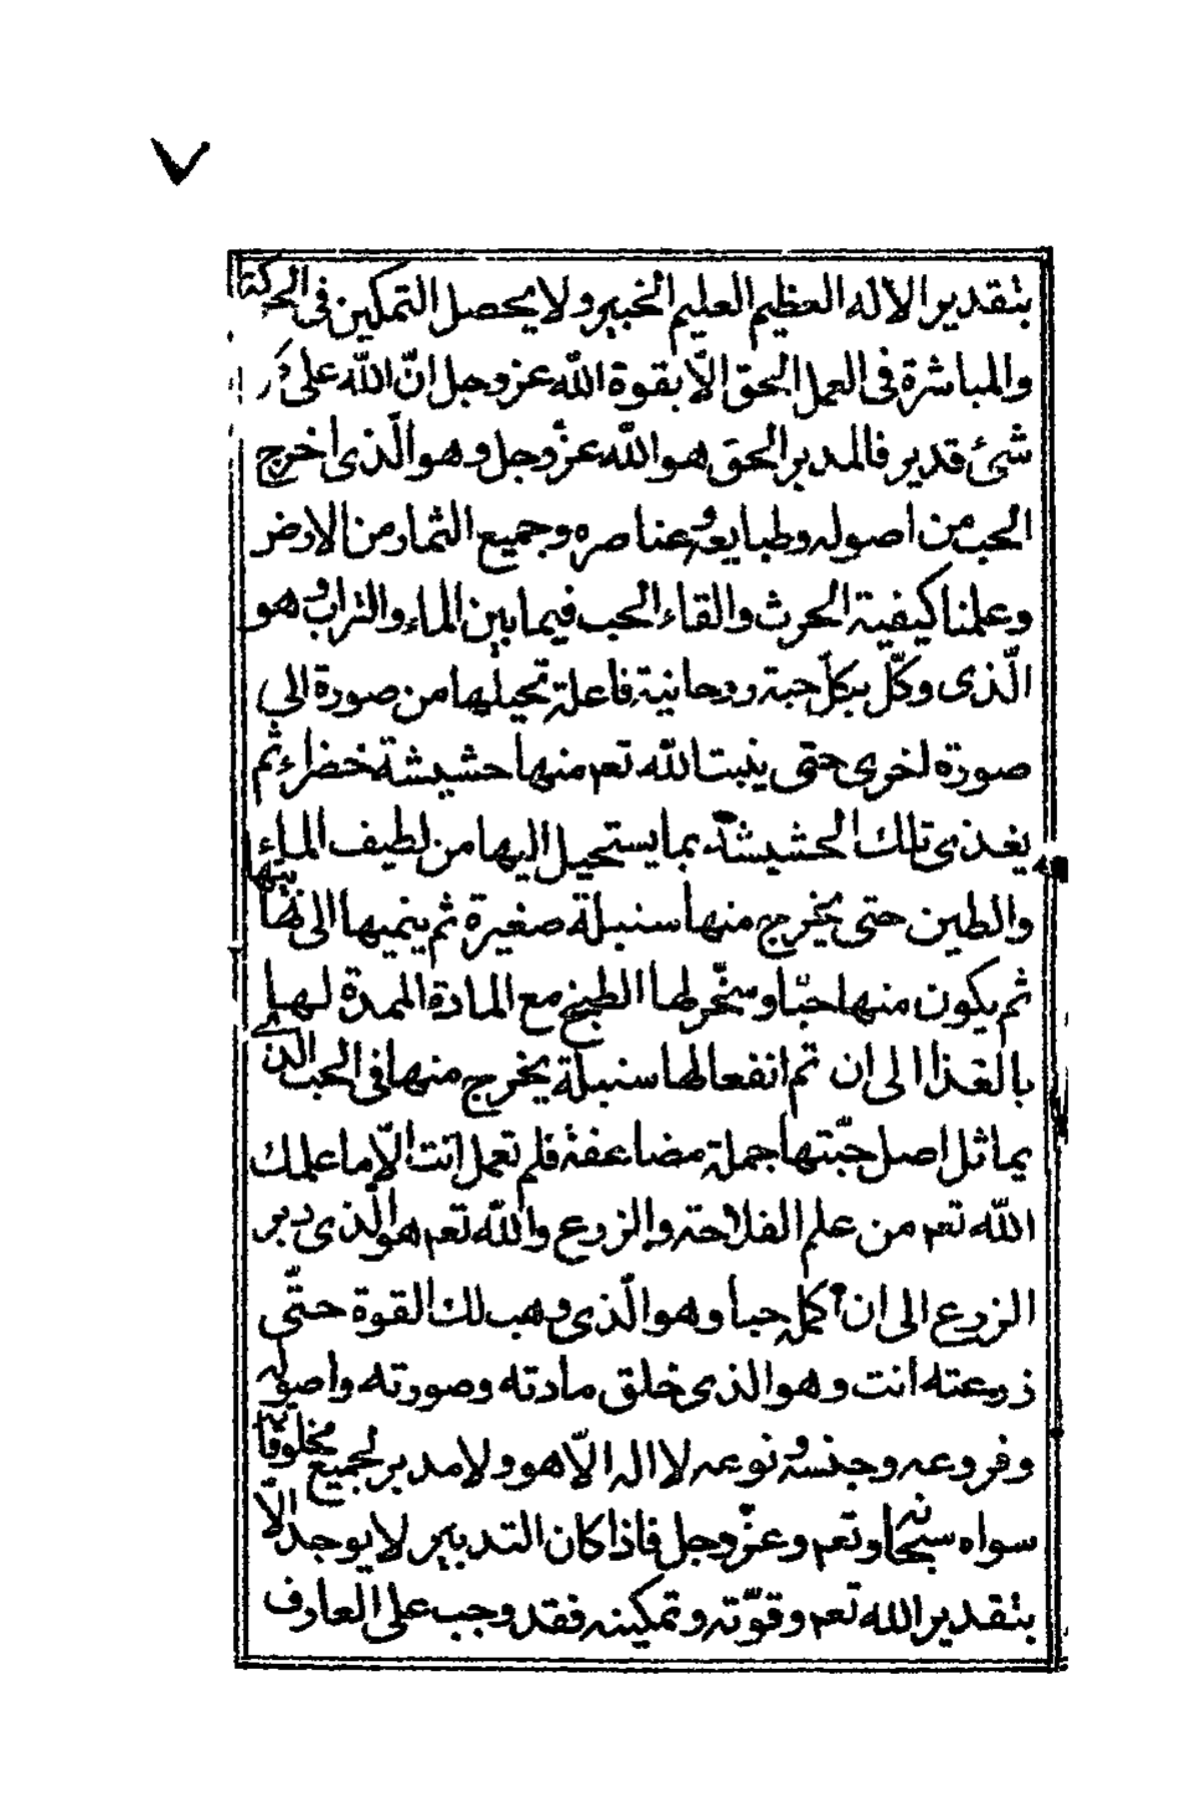 ٧
بتقدير الاله العظيم العليم الخبير ولا يحصل التمكين فى الحركة
والمباشرة فى العمل الحق الّا بقوة اللّه عز وجل انّ اللّه على
شئ قدير فالمدبر الحق هو اللّه عزّ وجل وهو الّذى اخرج
الحب من اصوله وطبايعه وعناصره وجميع الثمار من الارض
وعلمنا كيفية الحرث والقاء الحب فيما بين الماء والتراب وهو
الّذى وكّل بكلّ حبة روحانية فاعلة تحيلها من صورة الى
صورة اخرى حتى ينبت اللّه تعم منها حشيشة خضراء ثم
يغذى تلك الحشيشة بما يستحيل اليها من لطيف الماء
والطين حتى يخرج منها سنبلة صغيرة ثم ينميها الى نهايتها
ثم يكون منها حبّا وسخّر لها الطبخ مع المادة الممدة لها
بالغذا الى ان تم انفعالها سنبلة يخرج منها فى الحب الذى
يماثل اصل حبّتها جملة مضاعفة فلم تعمل انت الّا ما علمك
اللّه تعم من علم الفلاحة والزرع واللّه تعم هو الّذى دبر
الزرع الى ان كمله حبا وهو الّذى وهب لك القوة حتّى
زرعته انت وهو الذى خلق مادته وصورته واصوله
وفروعه وجنسه ونوعه لا اله الّا هو ولا مدبر لجميع مخلوقاته
سواه سبحانه وتعم وعزّ وجل فاذا كان التدبير لا يوجد الّا
بتقدير اللّه تعم وقوّته وتمكينه فقد وجب على العارف